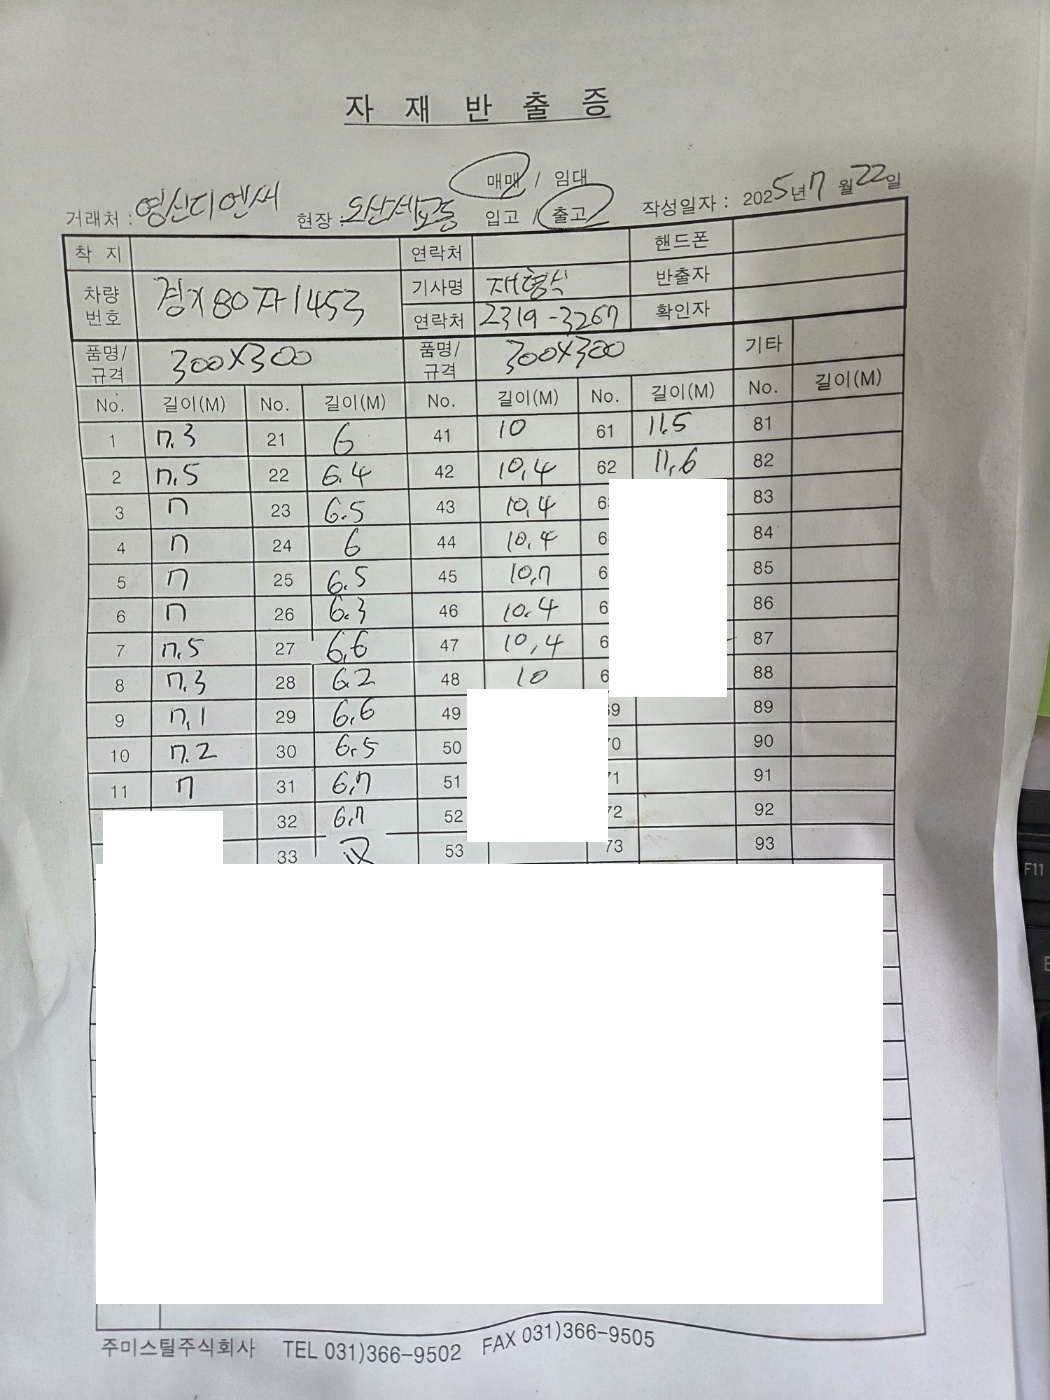 자 재 반 출 증
매매 / 임대
거래처 : 영신디엔씨 현장 : 오산세교동 입고 / 출고 작성일자 : 2025년 7월 22일
착 지 연락처 핸드폰
차량번호 경기80자1453 기사명 반출자
연락처 2319-3267 확인자
품명/규격 300X300 품명/규격 300X300 기타
No. 길이(M) No. 길이(M) No. 길이(M) No. 길이(M) No. 길이(M)
1 7.3 21 6 41 10 61 11.5 81
2 7.5 22 6.4 42 10.4 62 11.6 82
3 7 23 6.5 43 10.4 83
4 7 24 6 44 10.4 84
5 7 25 6.5 45 10.7 85
6 7 26 6.3 46 10.4 86
7 7.5 27 6.6 47 10.4 87
8 7.3 28 6.2 48 10 88
9 7.1 29 6.6 49 89
10 7.2 30 6.5 50 90
11 7 31 6.7 51 91
32 6.7 52 92
33 53 93
주미스틸주식회사 TEL 031)366-9502 FAX 031)366-9505